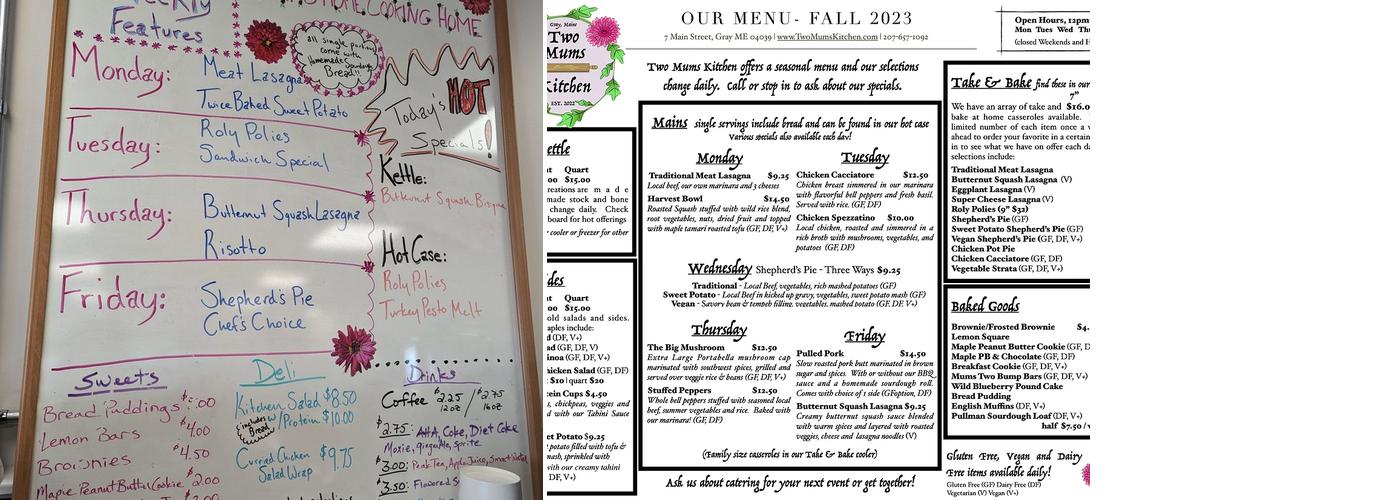 Weekly
Features
HOME COOKING HOME
all single portions
come with
Homemade Sourdough
Bread!!
Monday:
Meat Lasagna
Twice Baked Sweet Potato
Tuesday:
Roly Polies
Sandwich Special
Thursday:
Butternut Squash Lasagna
Risotto
Friday:
Shepherd's Pie
Chef's Choice
Today's HOT
Specials!
Kettle:
Butternut Squash Bisque
Hot Case:
Roly Polies
Turkey Pesto Melt
Sweets
Bread Puddings
Lemon Bars $4.00
Brownies $4.50
Maple Peanut Butter Cookie 2.00
Deli
Kitchen Salad $8.50
/Protein $10.00
includes
Bread
Curried Chicken $9.75
Salad Wrap
Drinks
Coffee $2.25 / $2.75
12oz 16oz
$2.75: A&A, Coke, Diet Coke
Moxie, gingerAle, Sprite
$3.00: Peak Tea, Apple Juice, Smart Water
$3.50: Flavored
Gray, Maine
Two
Mums
Kitchen
EST. 2022
OUR MENU- FALL 2023
7 Main Street, Gray ME 04039 | www.TwoMumsKitchen.com | 207-657-1092
Open Hours, 12pm
Mon Tues Wed Th
(closed Weekends and H
Two Mums Kitchen offers a seasonal menu and our selections
change daily. Call or stop in to ask about our specials.
ettle
t Quart
00 $15.00
reations are made
made stock and bone
change daily. Check
board for hot offerings
cooler or freezer for other
des
t Quart
00 $15.00
old salads and sides.
aples include:
d (DF, V+)
d (V, GF)
inoa (GF, DF, V+)
hicken Salad (GF, DF)
$10 | quart $20
ein Cups $4.50
s, chickpeas, veggies and
d with our Tahini Sauce
et Potato $9.25
potato filled with tofu &
nash, sprinkled with
with our creamy tahini
DF, V+)
Mains single servings include bread and can be found in our hot case
Various specials also available each day!
Monday
Traditional Meat Lasagna $9.25
Local beef, our own marinara and 3 cheeses
Harvest Bowl $14.50
Roasted Squash stuffed with wild rice blend,
root vegetables, nuts, dried fruit and topped
with maple tamari roasted tofu (GF, DF, V+)
Tuesday
Chicken Cacciatore $12.50
Chicken breast simmered in our marinara
with flavorful bell peppers and fresh basil.
Served with rice. (GF, DF)
Chicken Spezzatino $10.00
Local chicken, roasted and simmered in a
rich broth with mushrooms, vegetables, and
potatoes (GF, DF)
Wednesday Shepherd's Pie - Three Ways $9.25
Traditional - Local Beef, vegetables, rich mashed potatoes (GF)
Sweet Potato - Local Beef in kicked up gravy, vegetables, sweet potato mash (GF)
Vegan - Savory bean & tempeh filling, vegetables, mashed potato (GF, DF, V+)
Thursday
The Big Mushroom $12.50
Extra Large Portabella mushroom cap
marinated with southwest spices, grilled and
served over veggie rice & beans (GF, DF, V+)
Stuffed Peppers $12.50
Whole bell peppers stuffed with seasoned local
beef, summer vegetables and rice. Baked with
our marinara! (GF, DF)
Friday
Pulled Pork $14.50
Slow roasted pork butt marinated in brown
sugar and spices. With or without our BBQ
sauce and a homemade sourdough roll.
Comes with choice of 1 side (GFoption, DF)
Butternut Squash Lasagna $9.25
Creamy butternut squash sauce blended
with warm spices and layered with roasted
veggies, cheese and lasagna noodles (V)
(Family size casseroles in our Take & Bake cooler)
Ask us about catering for your next event or get together!
Take & Bake find these in our
7"
We have an array of take and $16.0
bake at home casseroles available.
limited number of each item once a w
ahead to order your favorite in a certain
in to see what we have on offer each da
selections include:
Traditional Meat Lasagna
Butternut Squash Lasagna (V)
Eggplant Lasagna (V)
Super Cheese Lasagna (V)
Roly Polies (9" $32)
Shepherd's Pie (GF)
Sweet Potato Shepherd's Pie (GF)
Vegan Shepherd's Pie (GF, DF, V+)
Chicken Pot Pie
Chicken Cacciatore (GF, DF)
Vegetable Strata (GF, DF, V+)
Baked Goods
Brownie/Frosted Brownie $4.
Lemon Square
Maple Peanut Butter Cookie (GF, D
Maple PB & Chocolate (GF, DF)
Breakfast Cookie (GF, DF, V+)
Mums Two Bump Bars (GF, DF, V+)
Wild Blueberry Pound Cake
Bread Pudding
English Muffins (DF, V+)
Pullman Sourdough Loaf (DF, V+)
half $7.50 / w
Gluten Free, Vegan and Dairy
Free items available daily!
Gluten Free (GF) Dairy Free (DF)
Vegetarian (V) Vegan (V+)